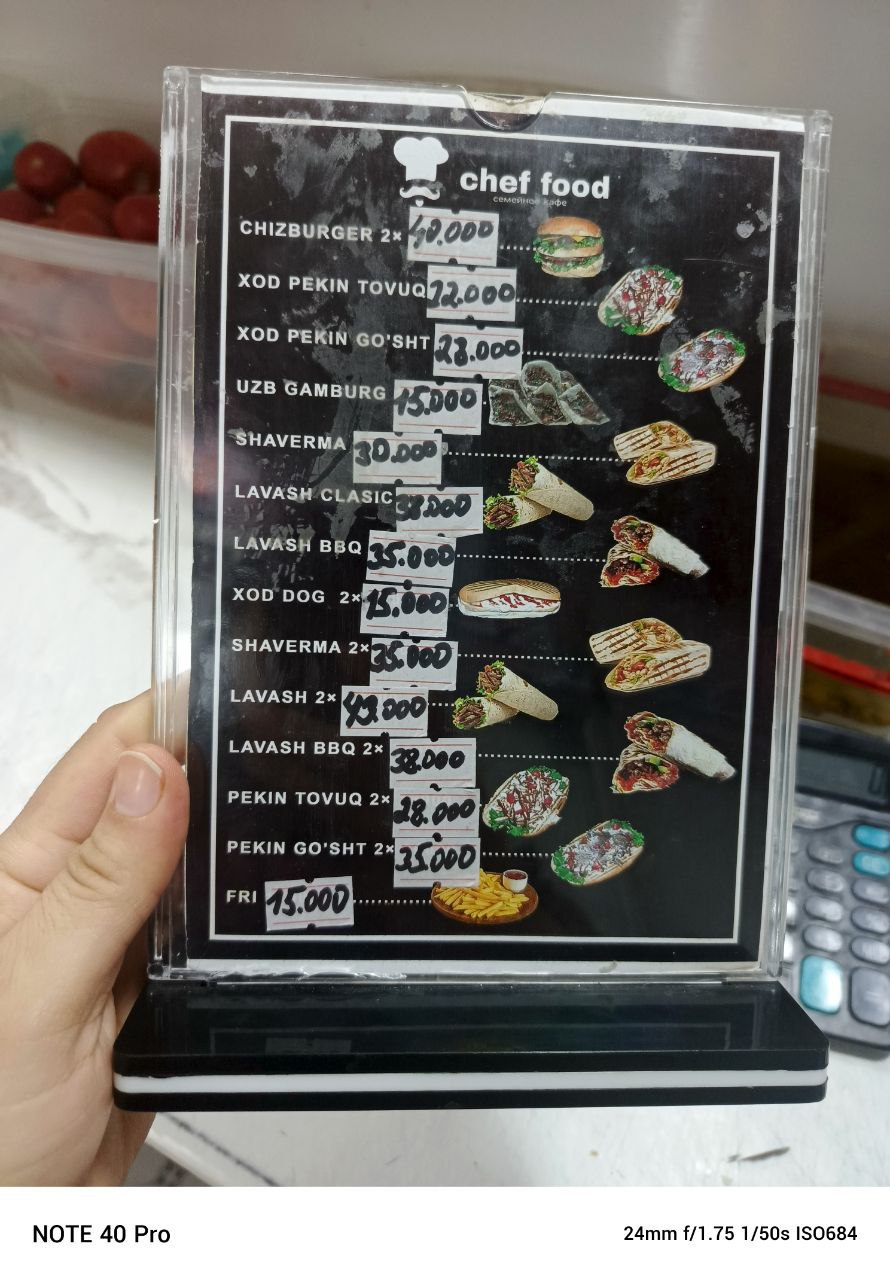 chef food
семейное кафе
CHIZBURGER 2× 40.000
XOD PEKIN TOVUQ 22.000
XOD PEKIN GO'SHT 28.000
UZB GAMBURG 15.000
SHAVERMA 30.000
LAVASH CLASIC
LAVASH BBQ 35.000
XOD DOG 2× 15.000
SHAVERMA 2× 35.000
LAVASH 2×
LAVASH BBQ 2× 38.000
PEKIN TOVUQ 2× 28.000
PEKIN GO'SHT 2× 35.000
FRI 15.000
NOTE 40 Pro
24mm f/1.75 1/50s ISO684